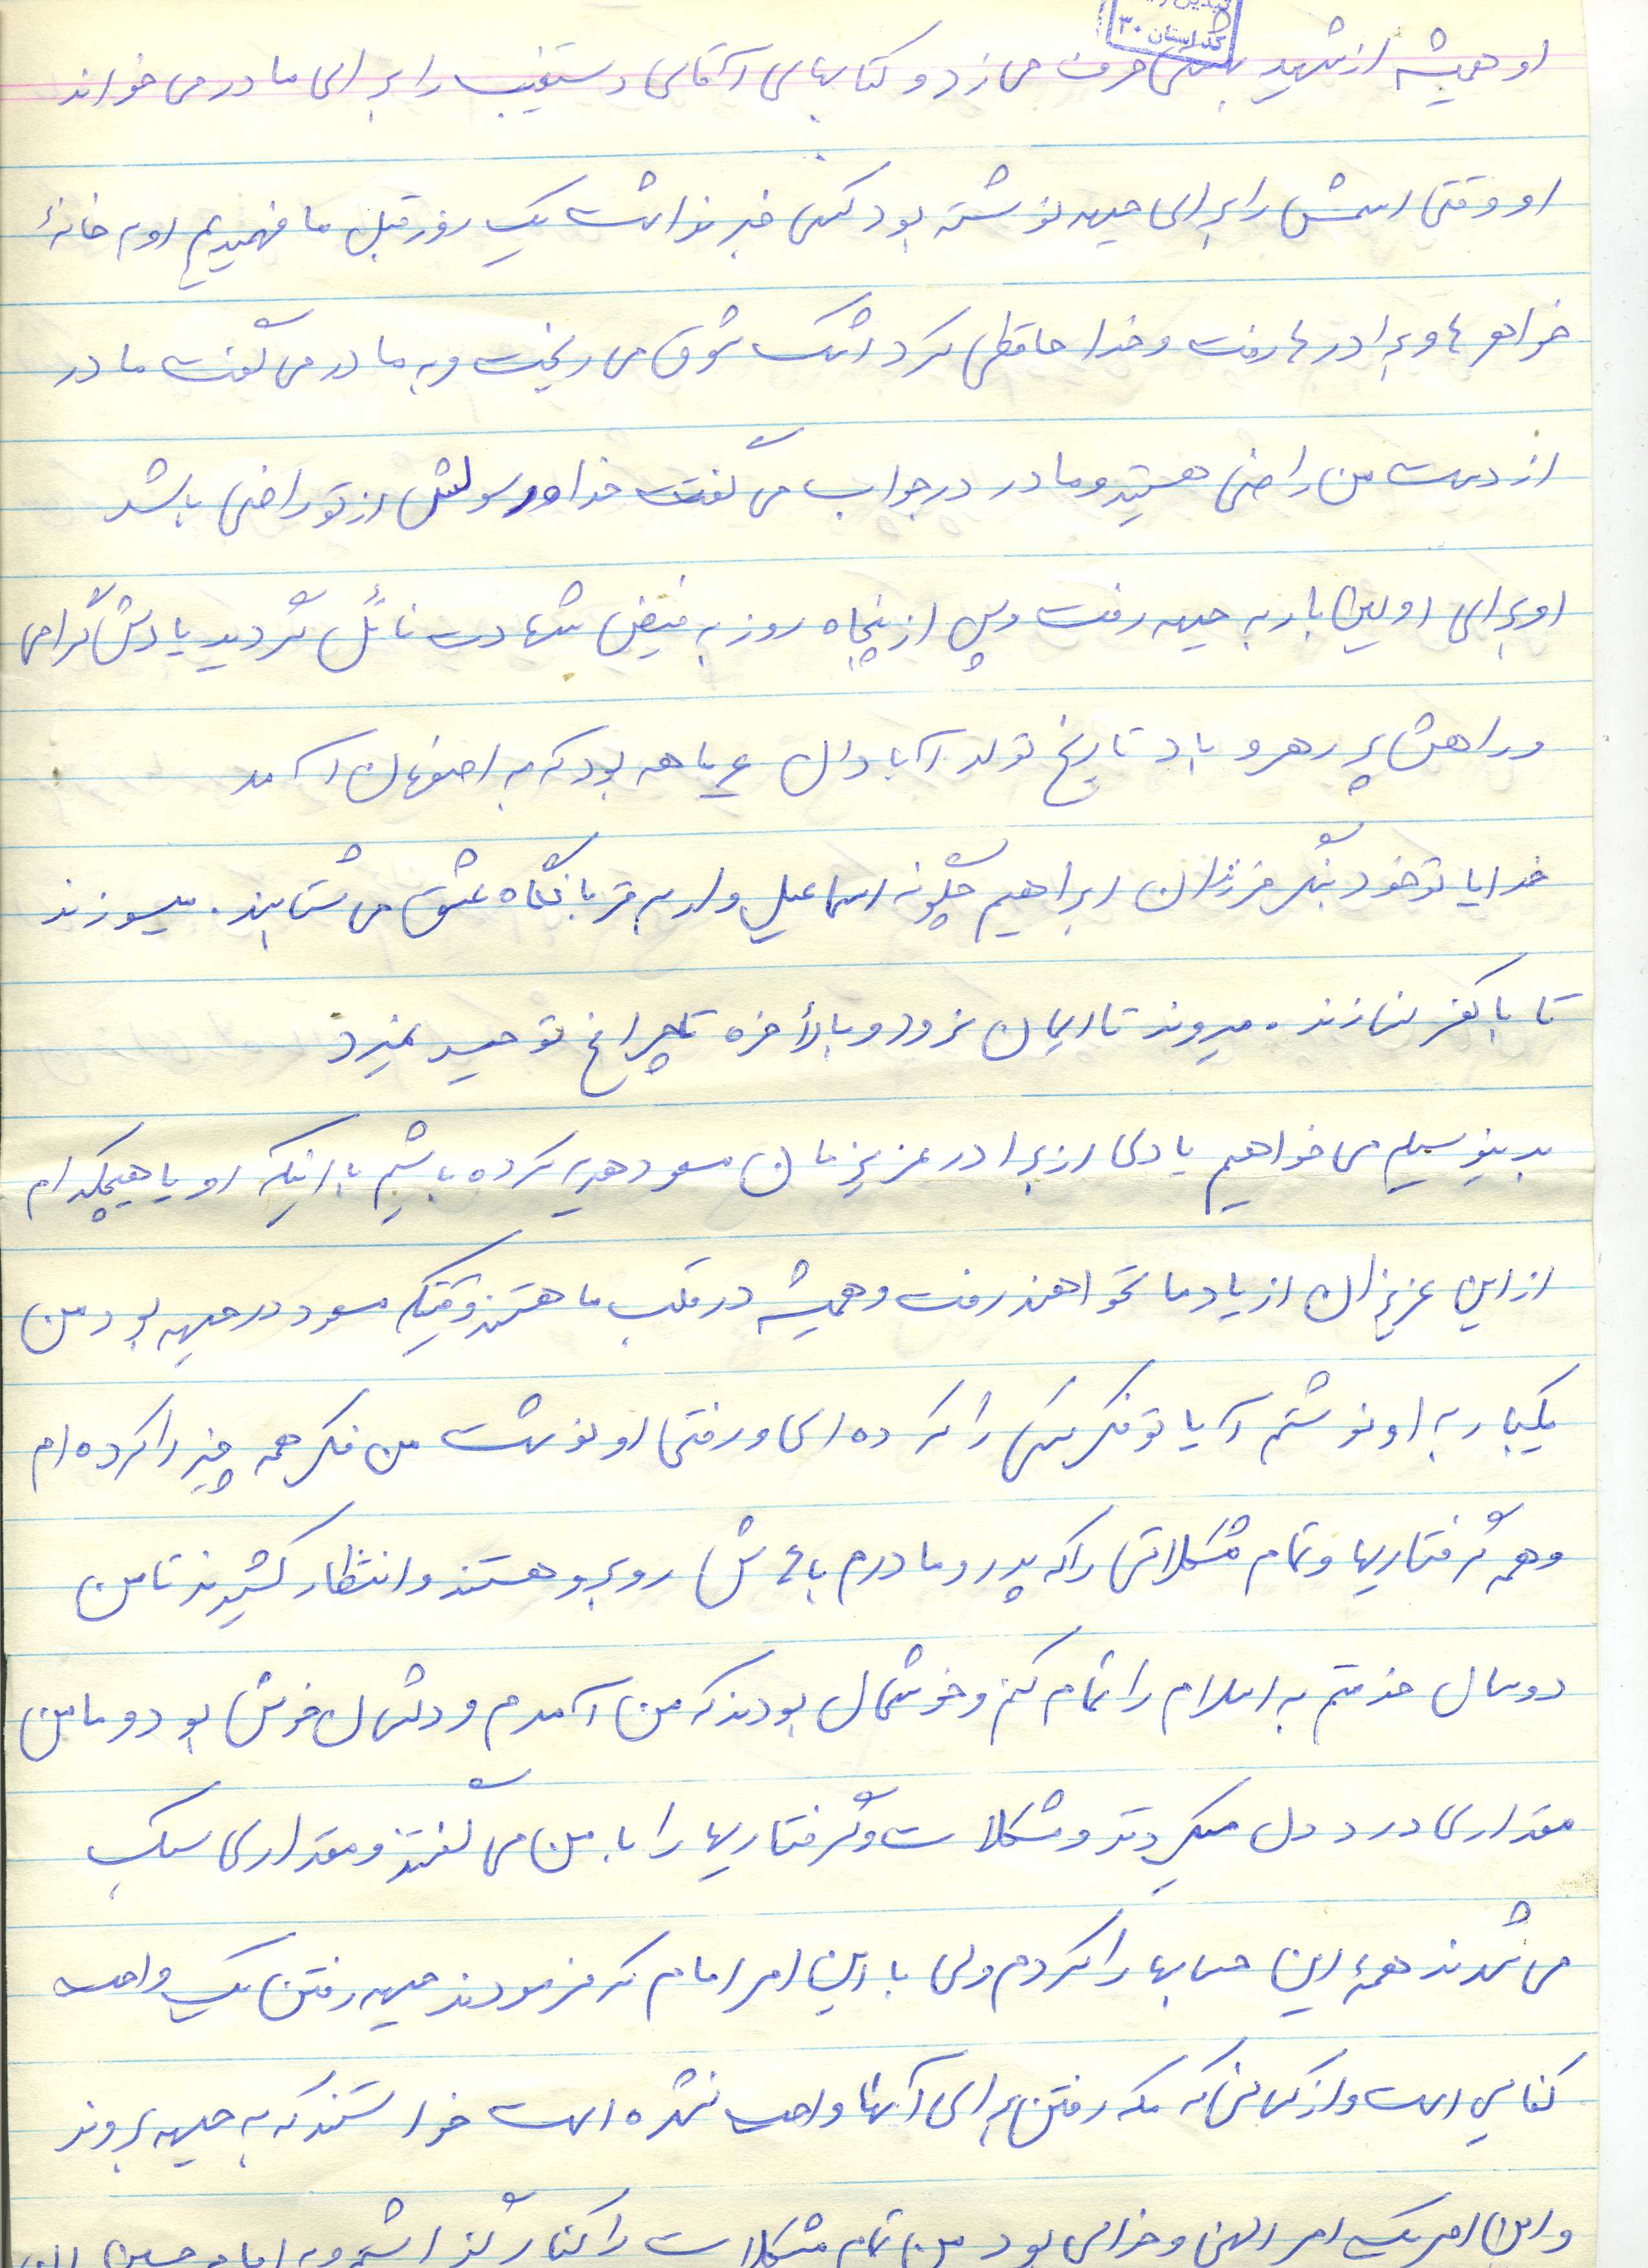 کد استان ۳۰
او همیشه از شهید بهشتی حرف می زد و کتابهای آقای دستغیب را برای مادر می خواند
او وقتی اسمش را برای جبهه نوشته بود کسی خبر نداشت یک روز قبل ما فهمیدیم او به خانهٔ
خواهرها و برادرها رفت و خدا حافظی کرد اشک شوق می ریخت و به مادر می گفت مادر
از دست من راضی هستید و مادر در جواب می گفت خدا و رسولش از تو راضی باشد
او برای اولین بار به جبهه رفت و پس از پنجاه روز به فیض شهادت نائل گردید یادش گرامی
و راهش پر رهرو باد تاریخ تولد آبادان ۶ ماهه بود که به اصفهان آمد
خدایا تو خود بنگر فرزندان ابراهیم چگونه اسماعیل وار به قربانگاه عشق می شتابند. میسوزند
تا با کفر نسازند. میروند تا ایمان نرود و بالأخره تا چراغ توحید نمیرد
بدینوسیله می خواهیم یادی از برادر عزیزمان مسعود هدیه کرده باشیم با اینکه او یا هیچکدام
از این عزیزان از یاد ما نخواهند رفت و همیشه در قلب ما هستند وقتیکه مسعود در جبهه بود من
یکبار به او نوشتم آیا تو فکرش را کرده ای و رفتی او نوشت من فکر همه چیز را کرده ام
و همه گرفتاریها و تمام مشکلاتی را که پدر و مادرم باهاش روبرو هستند و انتظار کشیدند تا من
دو سال خدمتم به اسلام را تمام کنم و خوشحال بودند که من آمدم و دلشان خوش بود و با من
مقداری درد دل میکردند و مشکلات و گرفتاریها را با من می گفتند و مقداری سبک
می شدند همهٔ این حسابها را کردم ولی با این امر امام که فرمودند جبهه رفتن یک واجب
کفایی است و از کسانی که مکه رفتن برای آنها واجب نشده است خواستند که به جبهه بروند
و این امر یک امر الهی و خدایی بود من تمام مشکلات را کنار گذاشتم و به امام حسین